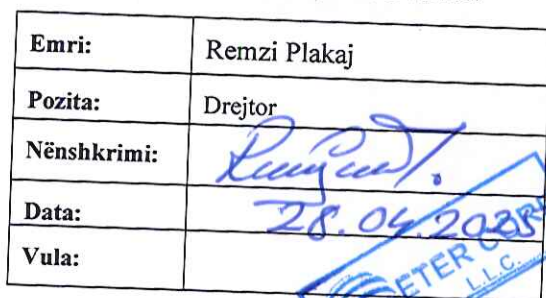 Emri: Remzi Plakaj
Pozita: Drejtor
Nënshkrimi:
Data: 28.04.2025
Vula:
L.L.C.